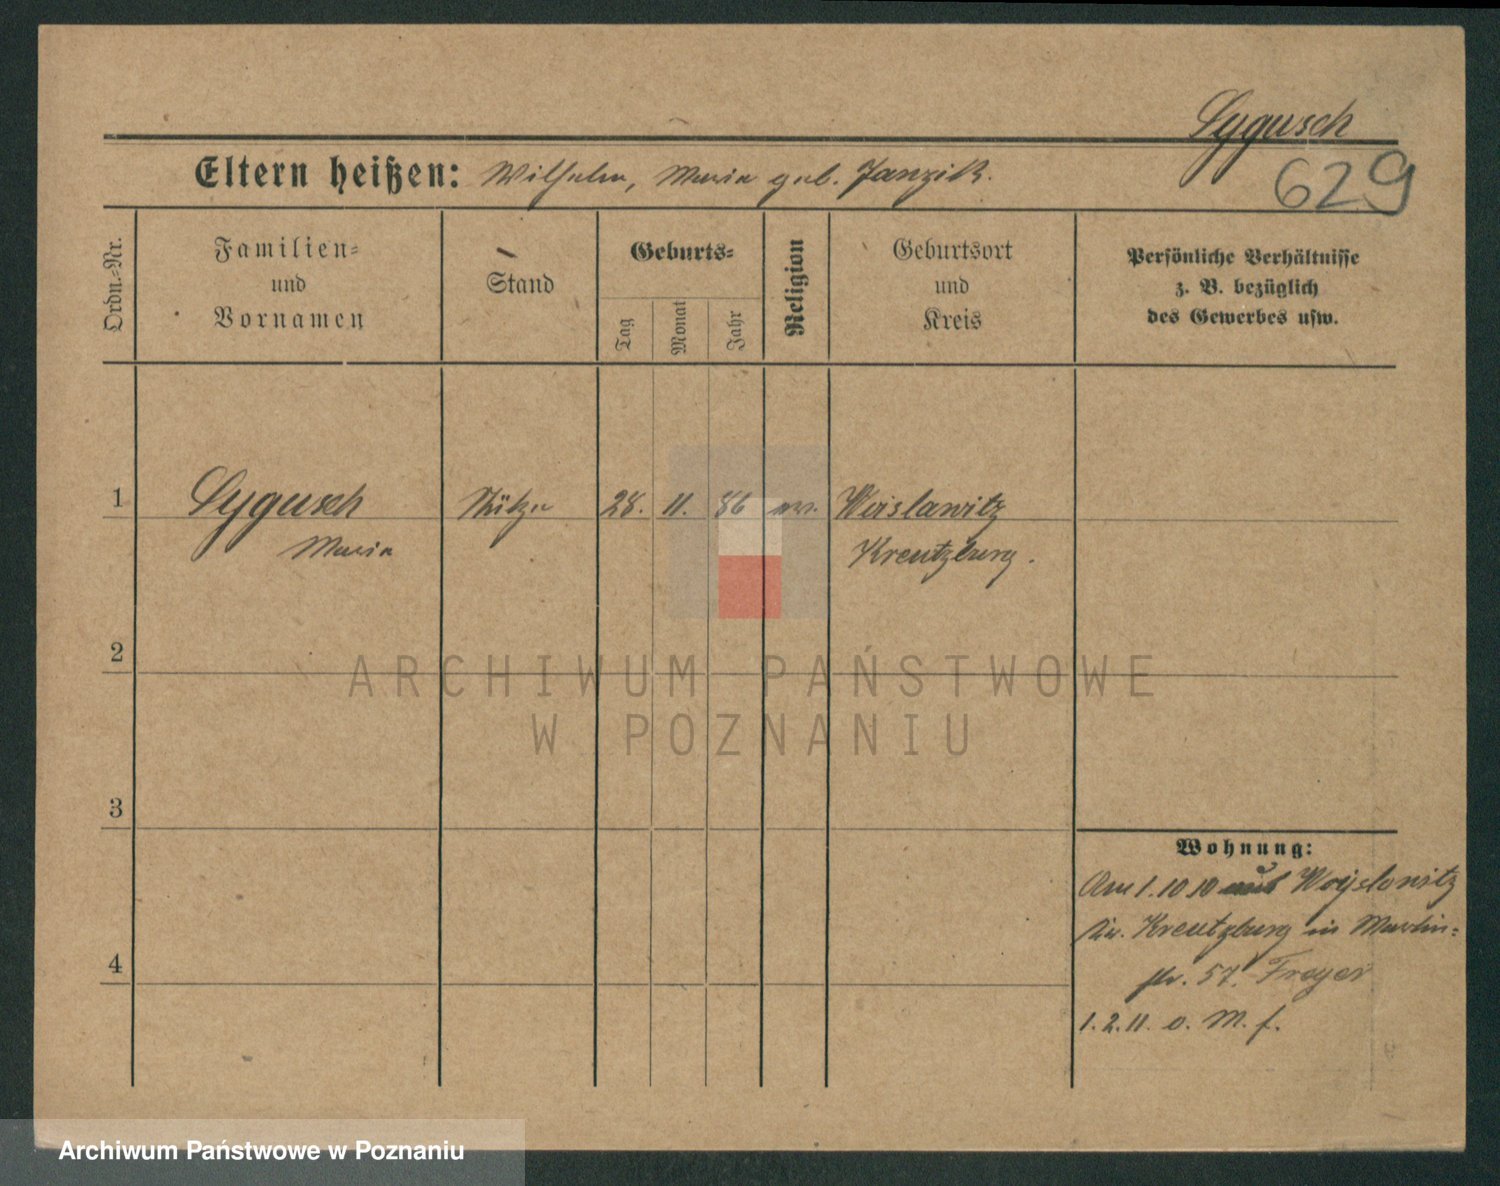 Sygusch
629
Eltern heißen: Wilhelm, Maria geb. Janzik.
Ordn.-Nr.
Familien-
und
Vornamen
Stand
Geburts-
Tag
Monat
Jahr
Religion
Geburtsort
und
Kreis
Persönliche Verhältnisse
z. B. bezüglich
des Gewerbes usw.
1 Sygusch Stütze 28. 11. 86 ev. Woislawitz
Maria Kreutzburg.
2
3
4
Wohnung:
Am 1.10 10 aus Woyslowitz
Kr. Kreutzburg in Martin-
str. 57. Freyer
1.2.11. o. M. f.
ARCHIWUM PAŃSTWOWE
W POZNANIU
Archiwum Państwowe w Poznaniu